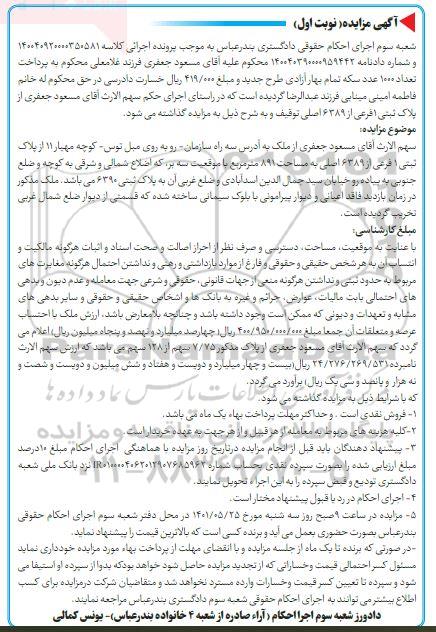 آگهی مزایده( نوبت اول)
شعبه سوم اجرای احکام حقوقی دادگستری بندرعباس به موجب پرونده اجرائی کلاسه ۱۴۰۰۴۰۹۲۰۰۰۰۳۵۰۵۸۱
و شماره دادنامه ۱۴۰۰۴۰۳۹۰۰۰۰۹۵۹۴۴۲ محکوم علیه آقای مسعود جعفری فرزند غلامعلی محکوم به پرداخت
تعداد ۱۰۰۰ عدد سکه تمام بهار آزادی طرح جدید و مبلغ ۴۱۹/۰۰۰ ریال خسارت دادرسی در حق محکوم له خانم
فاطمه امینی مینابی فرزند عبدالرضا گردیده است که در راستای اجرای حکم سهم الارث آقای مسعود جعفری از
پلاک ثبتی ۱فرعی از ۶۳۸۹ اصلی توقیف و به شرح ذیل به مزایده گذاشته می شود.
موضوع مزایده:
سهم الارث آقای مسعود جعفری از ملک به آدرس سه راه سازمان - رو به روی مبل توس- کوچه مهیار ۱۱ از پلاک
ثبتی ۱ فرعی از ۶۳۸۹ اصلی به مساحت ۸۹۱ مترمربع با موقعیت سه بر، که اضلاع شمالی و شرقی به کوچه و ضلع
جنوبی به پیاده رو خیابان سید جمال الدین اسدآبادی و ضلع غربی آن به پلاک ثبتی ۶۳۹۰ می باشد. ملک مذکور
در زمان بازدید فاقد اعیانی و دیوار پیرامونی با بلوک سیمانی ساخته شده که قسمتی از دیوار ضلع شمال غربی
تخریب گردیده است.
مبلغ کارشناسی:
با عنایت به موقعیت، مساحت، دسترسی و صرف نظر از احراز اصالت و صحت اسناد و اثبات هرگونه مالکیت و
انتساب آن به هر شخص حقیقی و حقوقی و فارغ از موارد بازداشتی و رهنی و نداشتن احتمال هرگونه مغایرت های
مربوط به حدود ثبتی و نداشتن هرگونه منعی از جهات قانونی، حقوقی و شرعی جهت معامله و عدم دیون و بدهی
های احتمالی بابت مالیات، عوارض، جرائم و غیره به بانک ها و اشخاص حقیقی و حقوقی و سایر بدهی های
مشابه و تعهدات و دیونی که ممکن است وجود داشته باشد و چنانچه بلامعارض باشد، ارزش ملک با احتساب
عرصه و متعلقات آن جمعا مبلغ ۴۰۰/۹۵۰/۰۰۰/۰۰۰ ریال(چهارصد میلیارد و نهصد و پنجاه میلیون ریال) اعلام می
گردد که سهم الارث آقای مسعود جعفری از پلاک مذکور ۷/۷۵ سهم از ۱۲۸ سهم می باشد که ارزش سهم الارث
نامبرده ۲۴/۲۷۶/۲۶۹/۵۳۱ ریال(بیست و چهار میلیارد و دویست و هفتاد و شش میلیون و دویست و شصت و
نه هزار و پانصد و سی یک ریال) برآورد می گردد.
که با شرایط ذیل به مزایده گذاشته می شود.
۱- فروش نقدی است . و حداکثر مهلت پرداخت بهاء یک ماه می باشد.
۲-کلیه هزینه های مربوط به معامله از هر قبیل و از هر جهت به عهده خریدار است.
۳- پیشنهاد دهندگان باید قبل از انجام مزایده در تاریخ روز مزایده با هماهنگی اجرای احکام مبلغ ۱۰درصد
مبلغ ارزیابی شده را بصورت سپرده نقدی بحساب شماره IR۰۱۰۰۰۰۴۰۶۲۰۱۲۹۰۷۶۸۵۹۶۲ نزد بانک ملی شعبه
دادگستری تودیع و قبض سپرده را به این اجراء تحویل نمایند.
۴- اجرای احکام در رد یا قبول پیشنهاد مختار است.
۵- مزایده در ساعت ۹صبح روز سه شنبه مورخ ۱۴۰۱/۰۵/۲۵ در محل دفتر شعبه سوم اجرای احکام حقوقی
بندرعباس بصورت حضوری بعمل می آید و برنده کسی است که بالاترین قیمت را پیشنهاد نماید.
-در صورتی که برنده تا یک ماه از جلسه مزایده و با انقضای مهلت از پرداخت بهاء مورد مزایده خودداری نماید
مسئول کسر احتمالی قیمت وخساراتی که از تجدید مزایده حاصل شود خواهد بودکه بدوا از سپرده او استیفا می
شود و سپرده تا تعیین کسر قیمت وخسارات وارده مسترد نخواهد شد و متقاضیان شرکت درمزایده برای کسب
اطلاع بیشتر می توانند به اجرای احکام حقوقی شعبه سوم دادگستری بندرعباس مراجعه نمایند.
دادورز شعبه سوم اجرا احکام ( آراء صادره از شعبه ۴ خانواده بندرعباس)- یونس کمالی